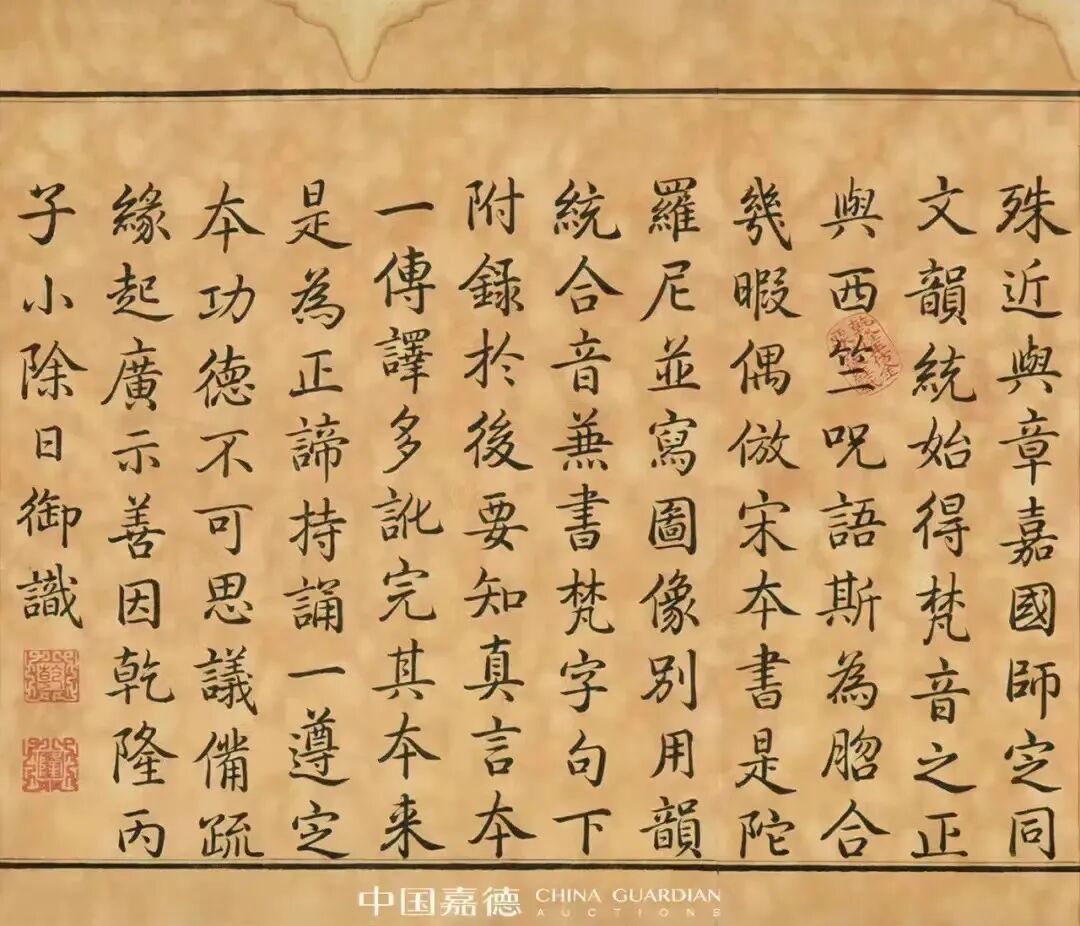 殊近與章嘉國師定同
文韻統始得梵音之正
與西竺呪語斯為脗合
幾暇偶倣宋本書是陀
羅尼並寫圖像別用韻
統合音兼書梵字句下
附錄於後要知真言本
一傳譯多訛完其本来
是為正諦持誦一遵定
本功德不可思議備疏
緣起廣示善因乾隆丙
子小除日御識
乾
隆
中国嘉德 CHINA GUARDIAN
AUCTIONS